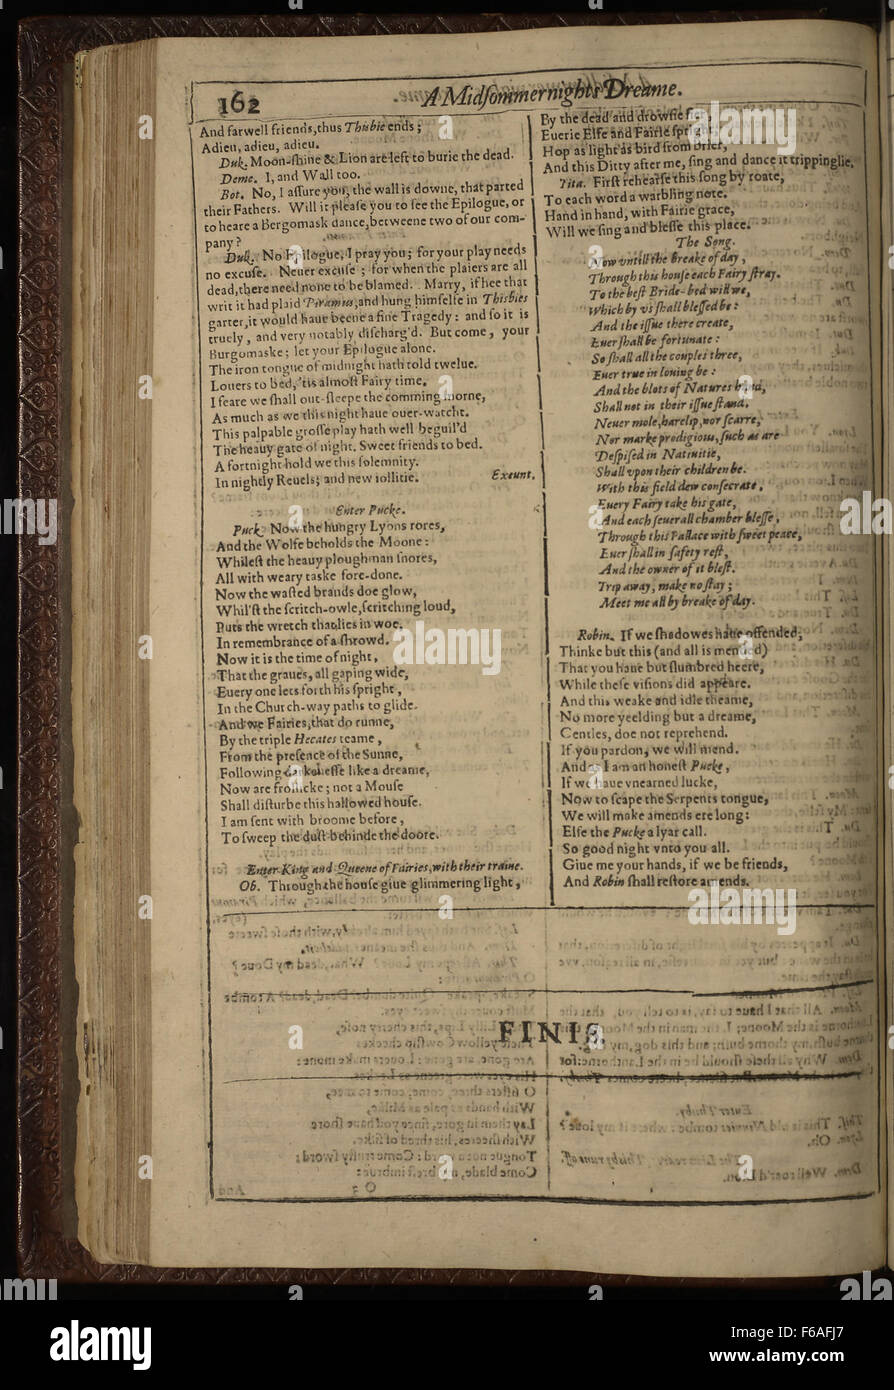 162
A Midſommernights Dreame.
And farwell friends,thus Thisbie ends;
Adieu, adieu, adieu.
Duk. Moon-ſhine & Lion are left to burie the dead.
Deme. I, and Wall too.
Bot. No, I aſſure you, the wall is downe, that parted
their Fathers. Will it pleaſe you to ſee the Epilogue, or
to heare a Bergomask dance,betweene two of our com-
pany?
Duk. No Epilogue, I pray you; for your play needs
no excuſe. Neuer excuſe; for when the plaiers are all
dead,there need none to be blamed. Marry, if hee that
writ it had plaid Piramus,and hung himſelfe in Thisbies
garter,it would haue beene a fine Tragedy: and ſo it is
truely, and very notably diſcharg'd. But come, your
Burgomaske; let your Epilogue alone.
The iron tongue of midnight hath told twelue.
Louers to bed, 'tis almoſt Fairy time.
I feare we ſhall out-ſleepe the comming morne,
As much as we this night haue ouer-watcht.
This palpable groſſe play hath well beguil'd
The heauy gate of night. Sweet friends to bed.
A fortnight hold we this ſolemnity.
In nightly Reuels; and new iollitie. Exeunt.
Enter Pucke.
Puck Now the hungry Lyons rores,
And the Wolfe beholds the Moone:
Whileſt the heauy ploughman ſnores,
All with weary taske fore-done.
Now the waſted brands doe glow,
Whil'ſt the ſcritch-owle,ſcritching loud,
Puts the wretch that lies in woe,
In remembrance of a ſhrowd.
Now it is the time of night,
That the graues, all gaping wide,
Euery one lets forth his ſpright,
In the Church-way paths to glide.
And we Fairies,that do runne,
By the triple Hecates teame,
From the preſence of the Sunne,
Following darkeneſſe like a dreame,
Now are frollicke; not a Mouſe
Shall diſturbe this hallowed houſe.
I am ſent with broome before,
To ſweep the duſt behinde the doore.
Enter King and Queene of Fairies,with their traine.
Ob. Through the houſe giue glimmering light,
By the dead and drowſie fier,
Euerie Elfe and Fairie ſpright,
Hop as light as bird from brier,
And this Ditty after me, ſing and dance it trippinglie.
Tita. Firſt rehearſe this ſong by roate,
To each word a warbling note.
Hand in hand, with Fairie grace,
Will we ſing and bleſſe this place.
The Song.
Now vntill the breake of day,
Through this houſe each Fairy ſtray.
To the beſt Bride-bed will we,
Which by vs ſhall bleſſed be:
And the iſſue there create,
Euer ſhall be fortunate:
So ſhall all the couples three,
Euer true in louing be:
And the blots of Natures hand,
Shall not in their iſſue ſtand.
Neuer mole,harelip,nor ſcarre,
Nor marke prodigious,ſuch as are
Deſpiſed in Natiuitie,
Shall vpon their children be.
With this field dew conſecrate,
Euery Fairy take his gate,
And each ſeuerall chamber bleſſe,
Through this Pallace with ſweet peace,
Euer ſhall in ſafety reſt,
And the owner of it bleſt.
Trip away, make no ſtay;
Meet me all by breake of day.
Robin. If we ſhadowes haue offended,
Thinke but this (and all is mended)
That you haue but ſlumbred heere,
While theſe viſions did appeare.
And this weake and idle theame,
No more yeelding but a dreame,
Centles, doe not reprehend.
If you pardon, we will mend.
And as I am an honeſt Pucke,
If we haue vnearned lucke,
Now to ſcape the Serpents tongue,
We will make amends ere long:
Elſe the Pucke a lyar call.
So good night vnto you all.
Giue me your hands, if we be friends,
And Robin ſhall reſtore amends.
FINIS.
alamy
Image ID: F6AFJ7
www.alamy.com